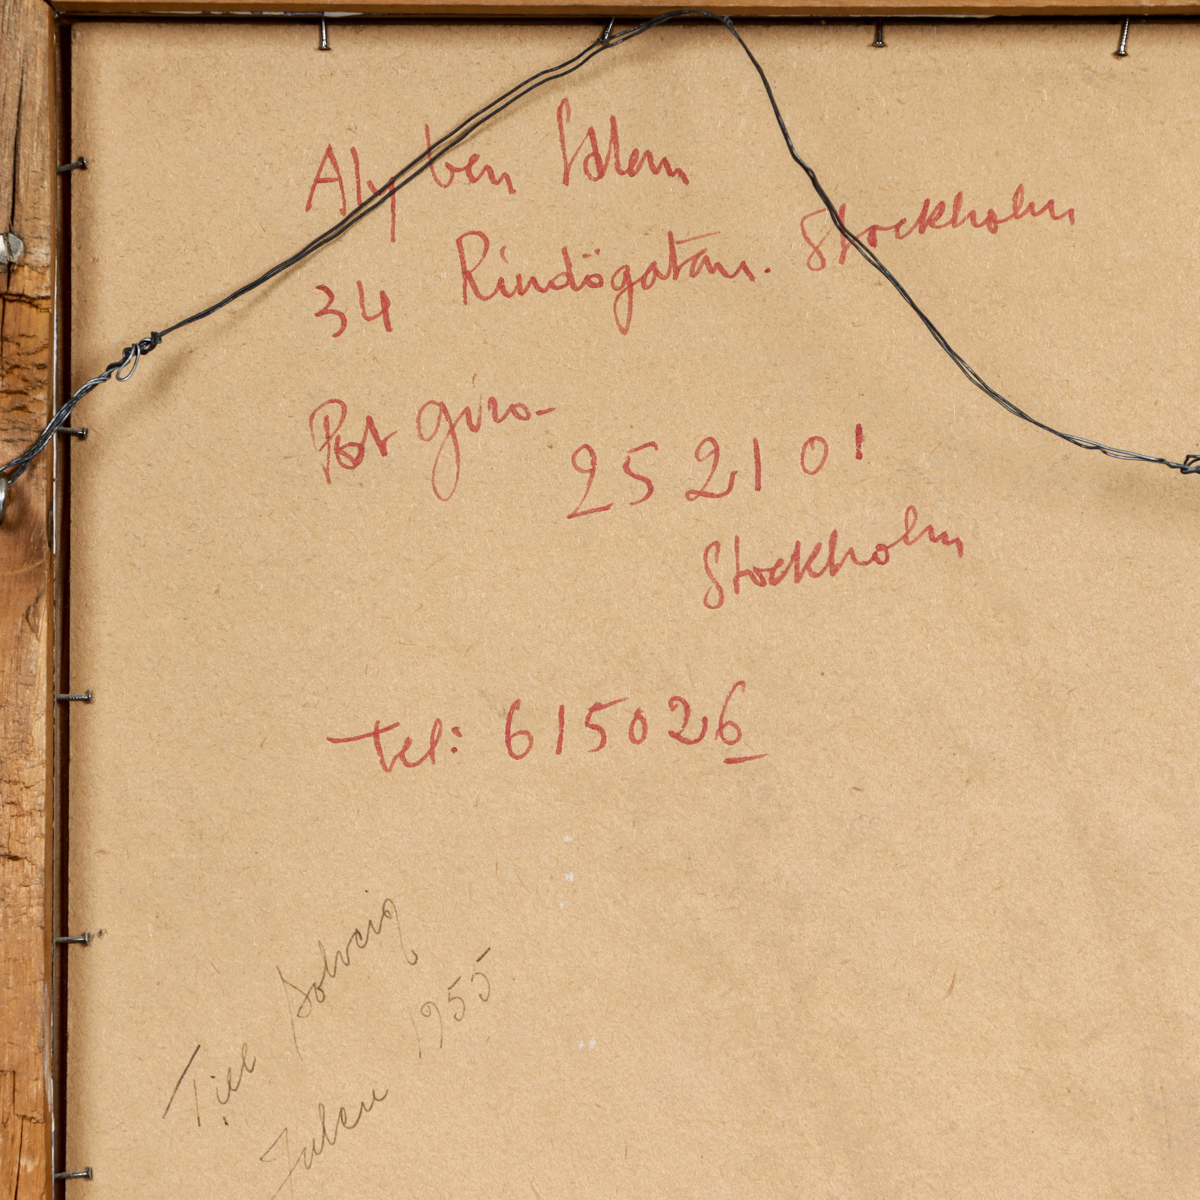 Aly ben Salem
34 Rindögatan. Stockholm
Post giro-
252101
Stockholm
Tel: 615026
Till Solveig
Julen 1955